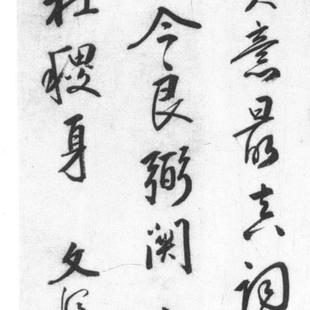 意最真詞
今良弼
社稷身 文